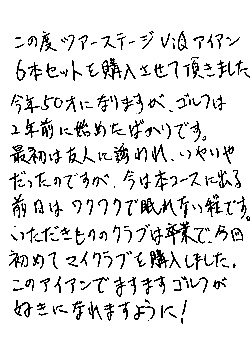 この度ツアーステージViQアイアン
6本セットを購入させて頂きました
今年50才になりますが、ゴルフは
2年前に始めたばかりです。
最初は友人に誘われ、いやいや
だったのですが、今は本コースに出る
前日はワクワクで眠れない程です。
いただきもののクラブは卒業で、今回
初めてマイクラブを購入しました。
このアイアンでますますゴルフが
好きになれますように!